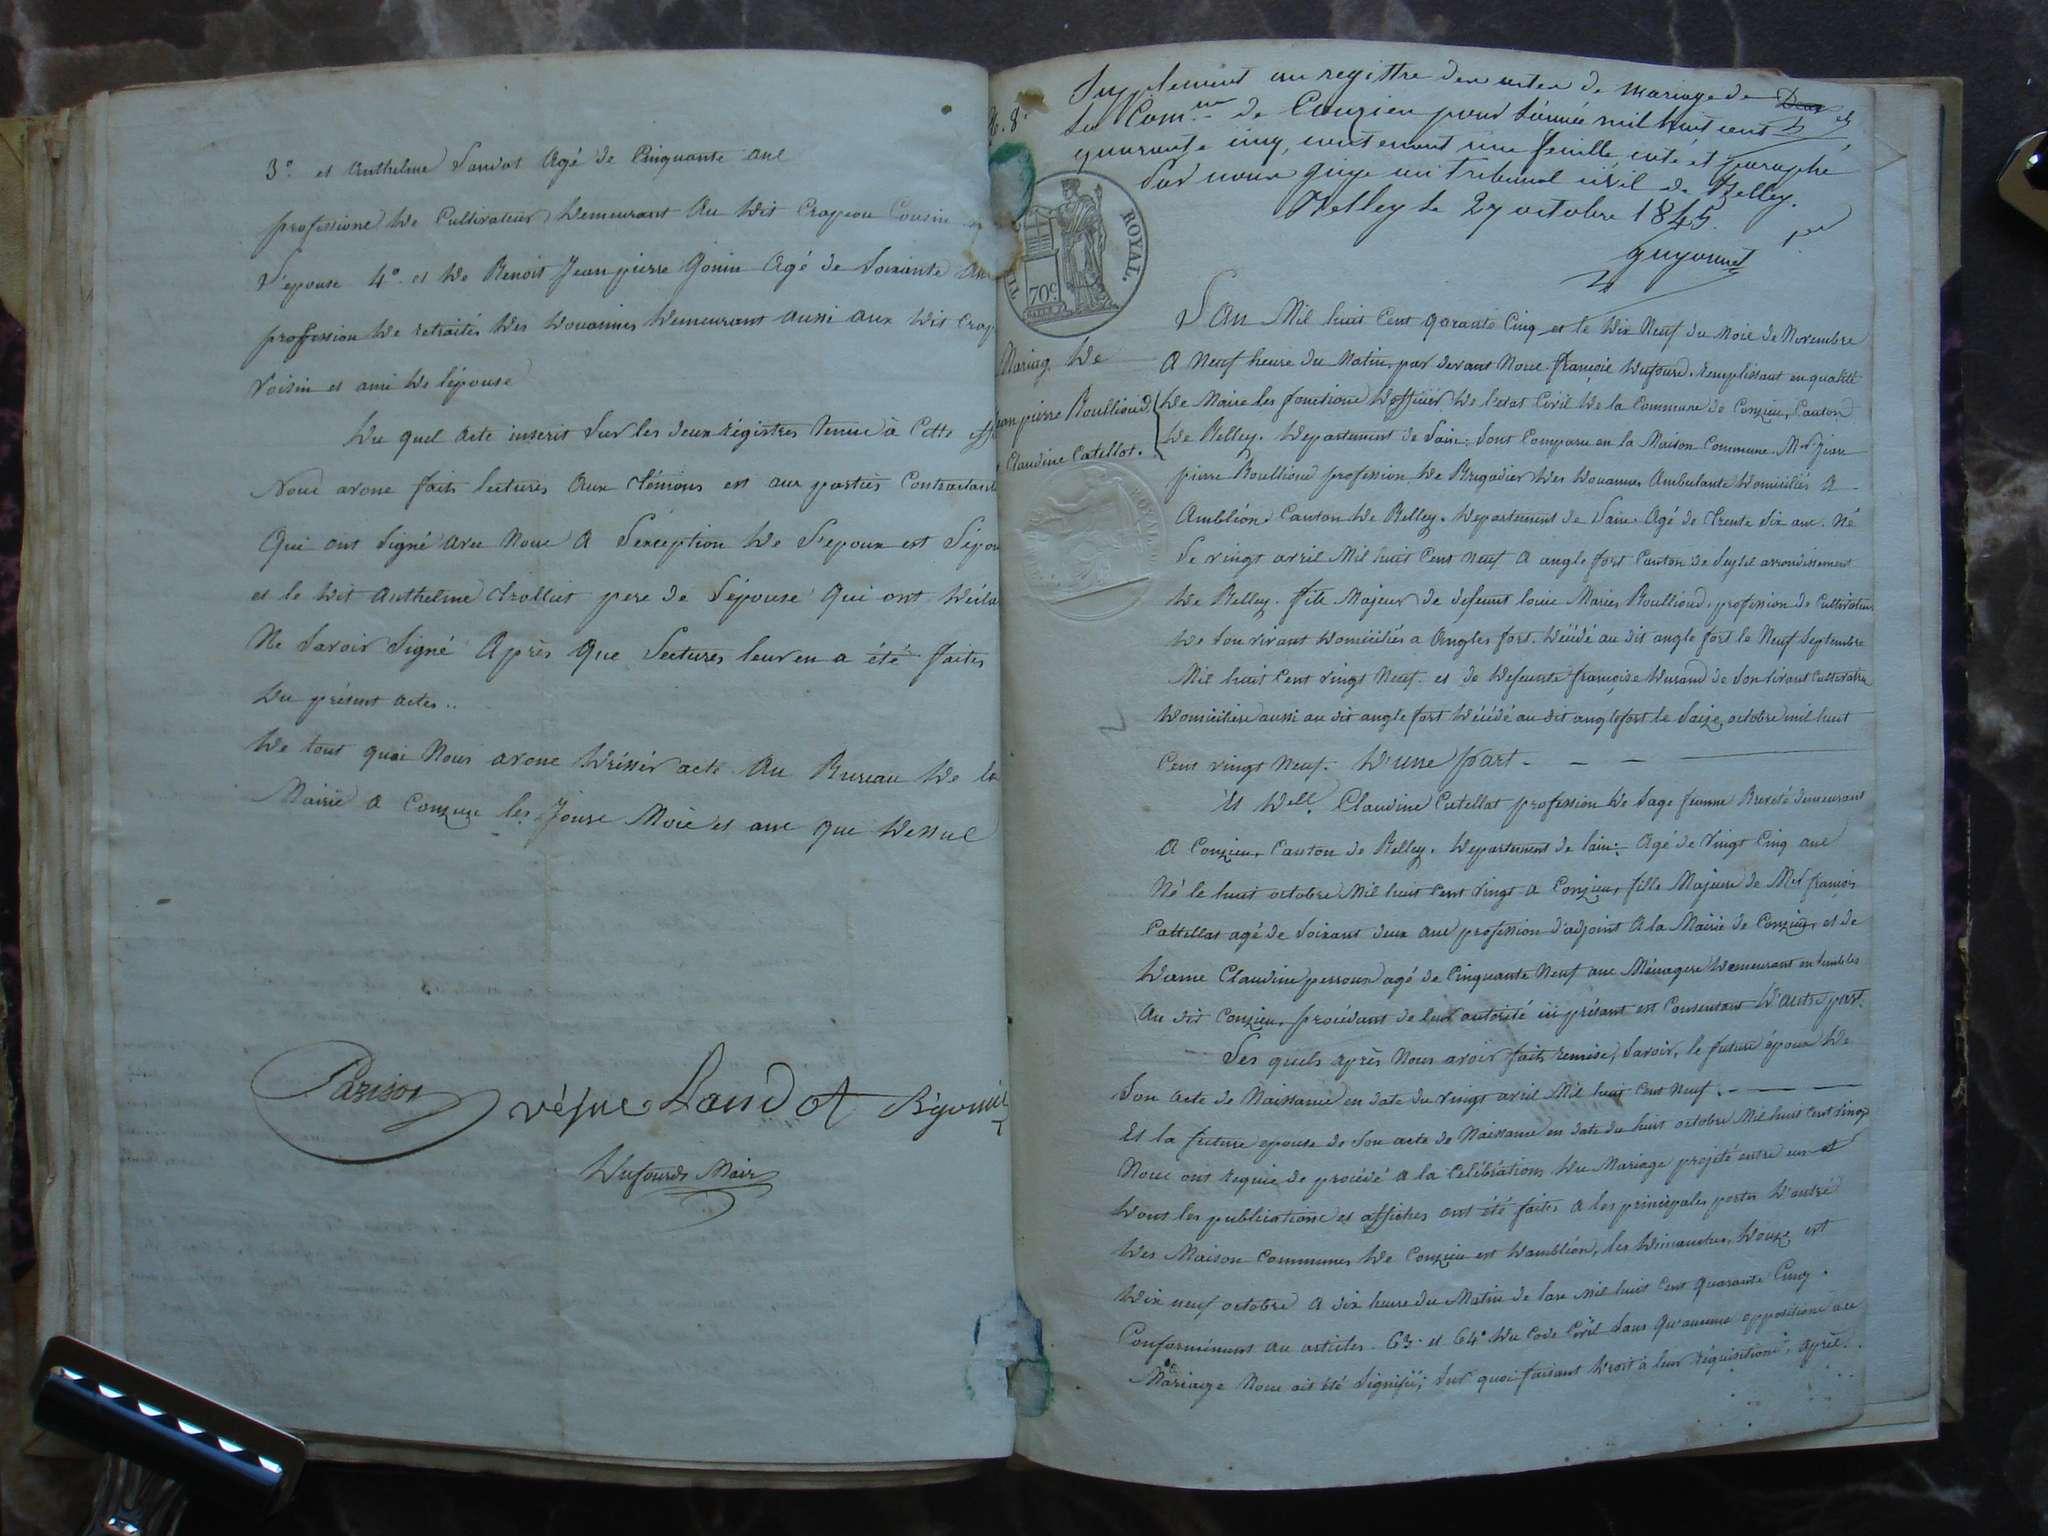 3° et Anthelme Landot Agé de Cinquante ans
profession De Cultivateur Demeurant Au Dit Crapeou Cousin
L'épouse 4° et De Benoit Jean pierre Gonin Agé de Soixante An
profession De retraités Des Douannes Demeurant aussi aux Dit Crap
Voisin et ami De lépouse
Du quel Acte inscrit Sur les deux régistres tenue à Cette effe
Nous avons faits lectures Aux témions est aux parties Contractante
Qui ont Signé avec Nous A Lexception De L'epoux est Lépou
et le Dit Anthelme Trolliet pere de Lépouse Qui ont Décla
Ne Savoir Signé Après Que Lectures leur en a été faites
Du présent actes..
De tout quoi Nous avons Dréssér acte Au Bureau De la
Mairie a Conzieu les Jours Mois et ans que Dessus
Parison vésue Landot Bgonin
Dufours Mair
N. 8.
Supplement au registre des actes de mariage de
la Com.ne de Conzieu pour l'année mil huit cent
quarante cinq, contenant une feuille, coté et paraphé
Par nous juge au Tribunal civil de Belley.
Belley le 27 octobre 1845.
guyonnet
ROYAL.
TI
70c
Mariag De
ean pierre Boullioud
t Claudine Catellot.
L'An Mil huit Cent qarante Cinq et le Dix Neuf du Mois de Novembre
A Neuf heure du Matin, par devant Nous françois Dufours, remplissant en qualité
De Maire les fonctions D'officier De l'etat Civil De la Commune de Conzieu, Canton
De Belley. Departement de Lain: Sont Comparu en la Maison Commune Mr Jean
pierre Boullioud profession De Brigadier Des Douannes Ambulante Domiciliés A
Ambléon Canton De Belley. Departement de Lain. Agé de Trente Six ans. Né
Le vingt avril Mil huit Cent Neuf A angle fort Canton de Seysel arrondissement
De Belley. fils Majeur de defeunt louis Maries Boullioud, profession de Cultivateur
De Son vivant Domiciliés a Angles fort. Décédé au dit angle fort le Neuf Septembre
Mil huit Cent vingt Neuf et de Defeunte françoise Durand de Son livant Cultivatrie
Domicilieés aussi au dit angle fort Décédé au dit anglefort le Saize octobre mil huit
Cent vingt Neuf. D'une part.
Et Dell. Claudine Catellat profession De Sage femme Breveté demeurant
A Conzieu, Canton de Belley. Departement de lain. Agé de Vingt Cinq ans
Né le huit octobre Mil huit Cent vingt a Conzieu, fille Majeure de Mr françois
Cattellat agé de Soixant deux ans profession d'adjoint A la Mairie de Conzieu, et de
Dame Claudine perroux agé de Cinquante Neuf ans Ménagere Demeurant ensembles
Au dit Conzieu, procédant de leur autorité ici présant est Consentant D'autre part.
Les quels après Nous avoir faits remise, Savoir, le future époux De
Son acte de Naissance en date du vingt avril Mil huit Cent Neuf.
Et la future epouse de Son acte de Naissance en date du huit octobre Mil huit Cent vingt
Nous ont requis de procédé A la Celébrations Du Mariage projeté entre eux et
Dont les publications et affiches ont été faites A les principales portes D'entré
Des Maison Communes De Conzieu est Dambléon, les Dimanches, Douze est
Dix neuf octobre A dix heure du Matin de lan Mil huit Cent quarante Cinq.
Conformément au articles 63 et 64° Du Code Civil Sans Qu'aucune opposition au
Mariage Nous ait été Signifié; Sur quoi faisant Droit à leur réquisition, après